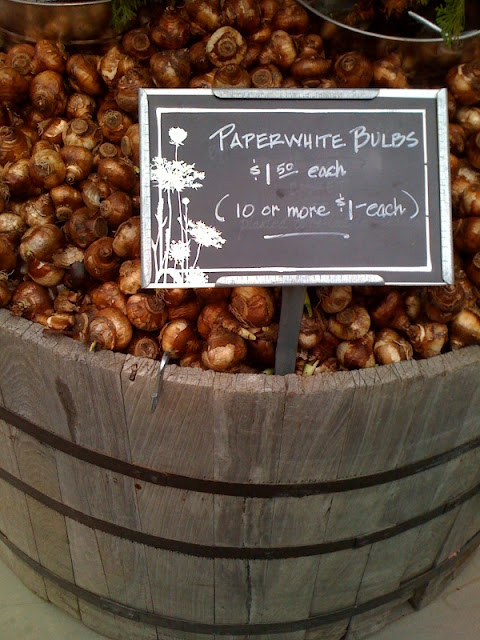 PAPERWHITE BULBS
$1.50 each
(10 or more $1-each)